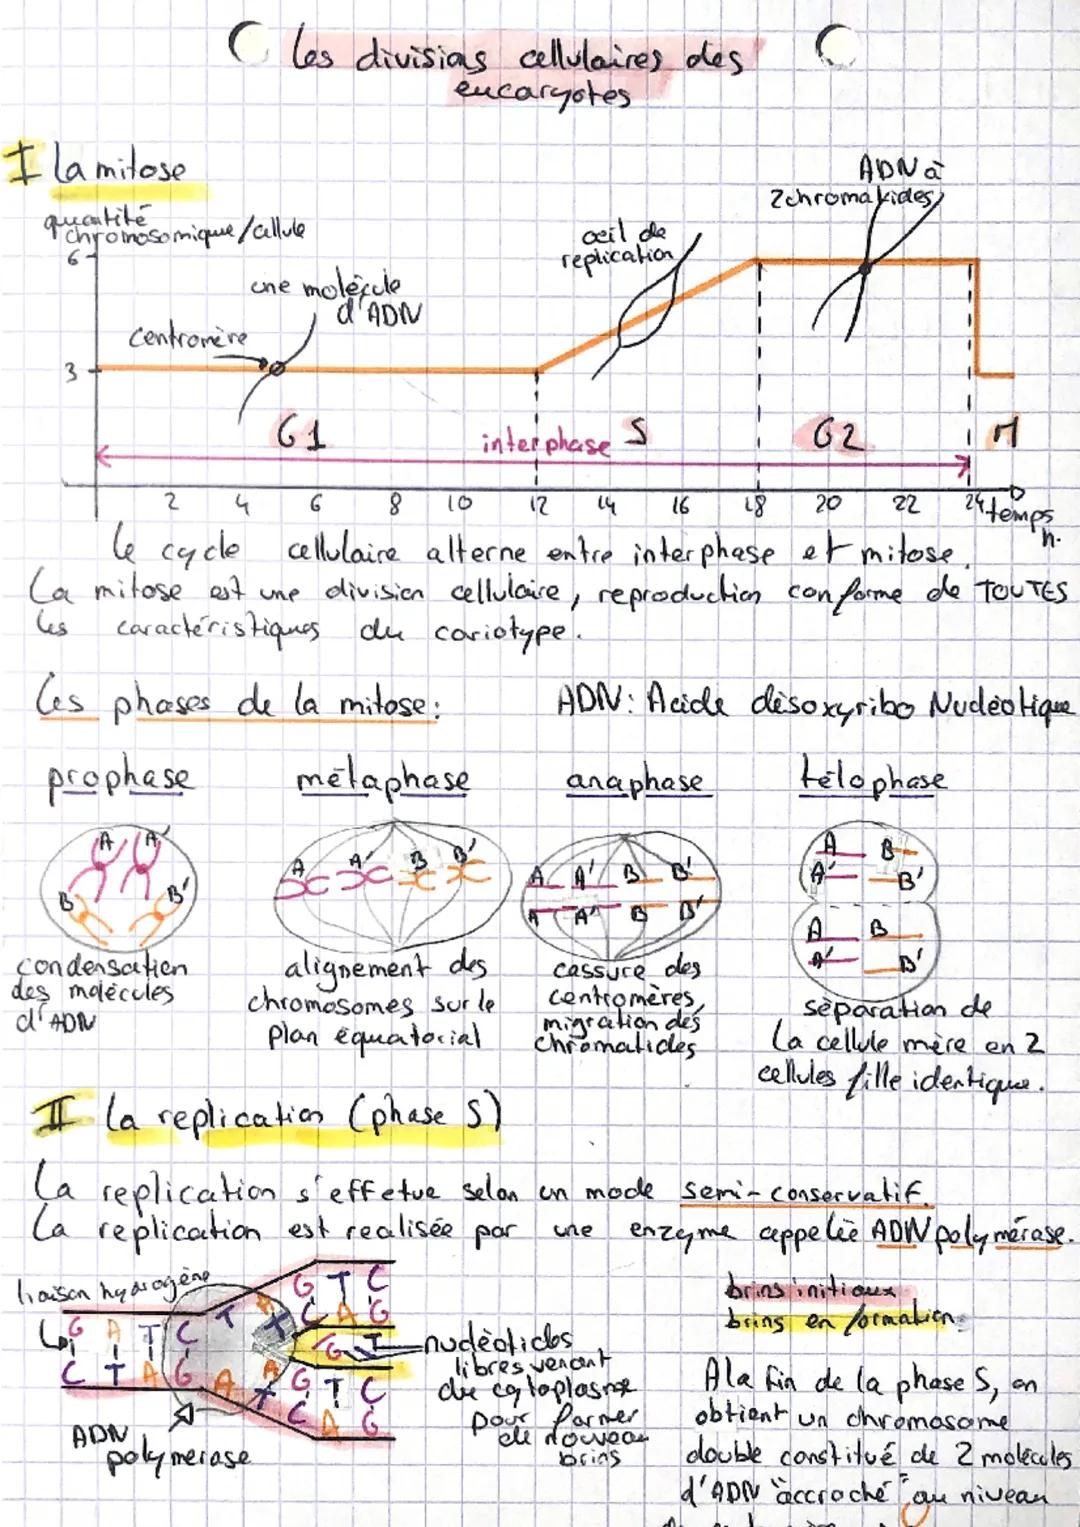 Les divisions cellulaires des
eucaryotes
I La mitose
quantité
chromosomique/cellule
6
3
une molécule
d'ADN
centromère
oeil de
replication
ADN à
2 chromatides
G1
interphase
S
G2
M
2 4 6 8 10 12 14 16 18 20 22 24 temps
h.
Le cycle cellulaire alterne entre interphase et mitose.
La mitose est une division cellulaire, reproduction conforme de TOUTES
les caractéristiques du cariotype.
Les phases de la mitose:
ADN: Acide désoxyribo Nucléotique
prophase métaphase anaphase télophase
A A'
B B'
A A' B B'
A A' B B'
A A' B B'
A B
A' B'
A B
A' B'
condensation
des molécules
d'ADN
alignement des
chromosomes sur le
plan équatorial
cassure des
centromères,
migration des
chromatides
séparation de
la cellule mère en 2
cellules fille identique.
II La replication (phase S)
La replication s'effetue selon un mode semi-conservatif.
La replication est realisée par une enzyme appelée ADN polymérase.
liaison hydrogène
G A T C T A
C T A G A T
G T C
C A G
G T
G T C
C A G
ADN
polymerase
nucléotides
libres venant
du cytoplasme
pour former
de nouveau
brins
brins initiaux
brins en formation
A la fin de la phase S, on
obtient un chromosome
double constitué de 2 molécules
d'ADN "accroché" au niveau